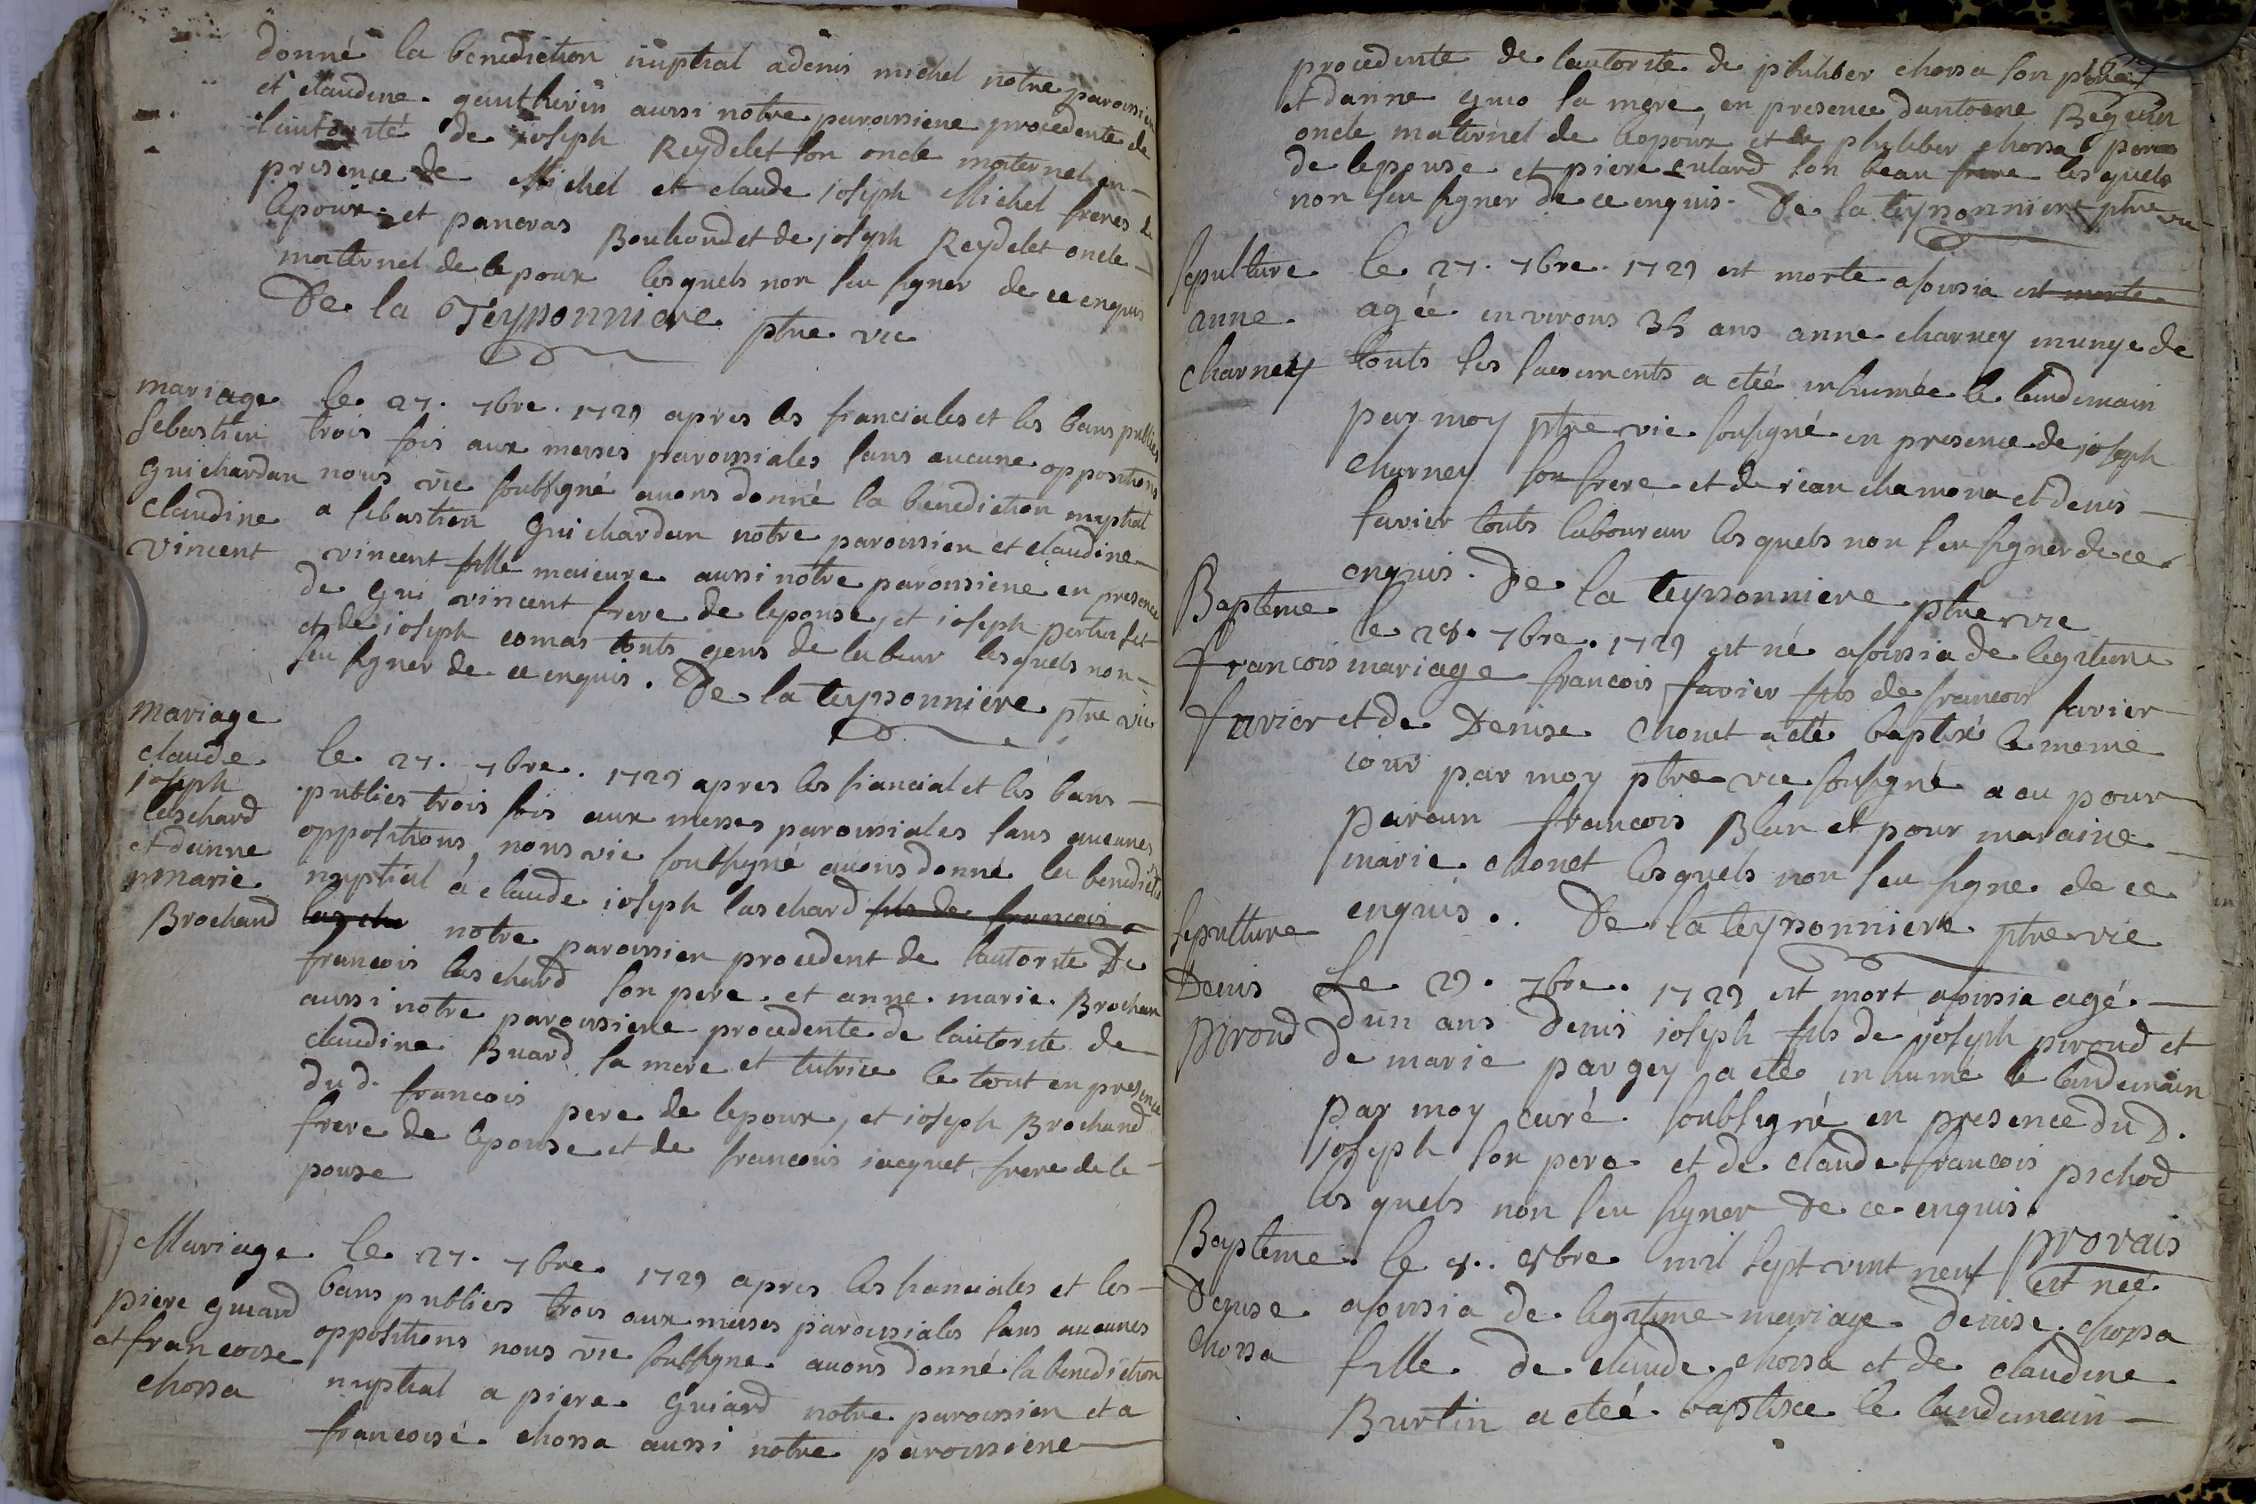 donné la benediction nuptial a denis michel notre paroissien
et claudine gauthirin aussi notre paroissiene procedente de
lautorité de joseph Reydelet son oncle maternel en
presence de Michel et claude joseph Michel freres de
lepoux et pancras Bouhoud et de joseph Reydelet oncle
maternel de lepoux lesquels non seu signer de ce enquis
De la Teyssonniere ptre vic
mariage
Sebastien
Guichardan
Claudine
Vincent
le 27. 7bre. 1729 apres les fianciales et les bans publies
trois fois aux messes paroissiales sans aucune oppositions
nous vic soubsigné auons donné la benediction nuptial
a sebastien Guichardan notre paroissien et claudine
vincent fille maieure aussi notre paroissiene en presence
de gui vincent frere de lepouse, et joseph
et de joseph comas touts gens de labeur lesquels non
seu signer de ce enquis. De la teyssonniere ptre vic
mariage
claude
joseph
laschard
et danne
marie
Brochand
le 27. 7bre. 1729 apres les fiancial et les bans
publies trois fois aux messes paroissiales sans aucunes
oppositions, nous vic soubsigné auons donné la benedictio
nuptial a claude joseph laschard fils de francois
las cha notre paroissien procedent de lautorite De
francois laschard son pere et anne marie Brochan
aussi notre paroissiene procedente de lautorite de
claudine Buard sa mere et tutrice le tout en presence
du d. francois pere de lepoux, et joseph Brochand
frere de lepouse et de francois jacquet frere de le
pouse
Mariage
piere guiard
et francoise
chossa
le 27. 7bre. 1729 apres les fianciales et les
bans publies trois aux messes paroissiales sans aucunes
oppositions nous vic soubsigne auons donné la benediction
nuptial a piere Guiard notre paroissien et a
francoise chossa aussi notre paroissiene
procedente de lautorite de philiber chossa son pere
et danne gmo sa mere en presence dantoene Reguin
oncle maternel de lepoux et de philiber chossa pere
de lepouse et piere culard son beau frere lesquels
non seu signer de ce enquis. De la teyssonniere ptre vic
sepulture
anne
charney
le 27. 7bre. 1729 est morte a soussia est morte
agée environs 35 ans anne charney munye de
touts les sacrements a eteé inhumée le landemain
par moy ptre vic sousigné en presence de joseph
charney son frere et de jean chamona et denis
favier touts laboureur lesquels non seu signer de ce
enquis. De la teyssonniere ptre vic
Baptême
francois
favier
le 28. 7bre. 1729 est né a soussia de legitime
mariage francois favier fils de francois favier
et de Denise Chonet a eté baptisé le meme
jour par moy ptre vic sousigné a eu pour
parain francois Blan et pour maraine
marie chonet lesquels non seu signe de ce
enquis. De la teyssonniere ptre vic
sepulture
Denis
piroud
Le 29. 7bre. 1729 est mort a soussia agé
dun ans Denis joseph fils de joseph piroud et
de marie pargey a eté inhumé le landemain
par moy curé soubsigné en presence du D.
joseph son pere et de claude francois pichod
les quels non seu signer de ce enquis.
provais
Baptême
Denise
chossa
le 8. 8bre mil sept vint neuf est née
a soussia de legitime mariage Denise chossa
fille de claude chossa et de claudine
Burtin a eteé baptisee le landemain